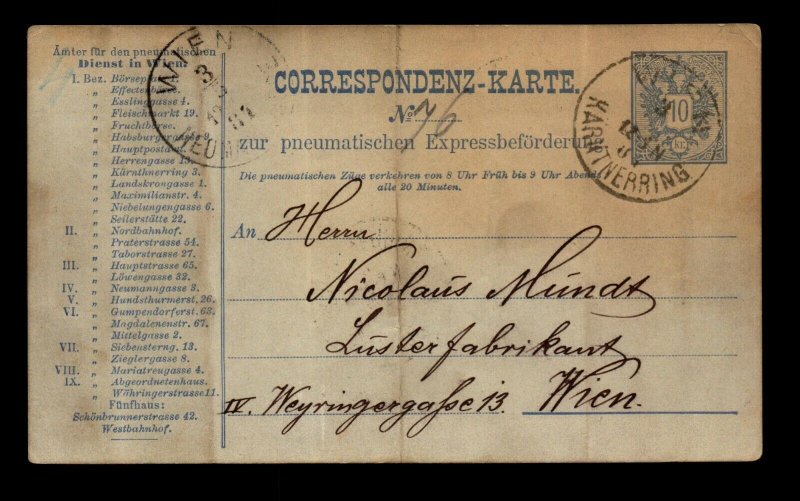 Ämter für den pneumatischen
Dienst in Wien:
I. Bez. Börseplatz 1.
" Effectenbörse.
" Esslinggasse 4.
" Fleischmarkt 19.
" Fruchtbörse.
" Habsburgergasse 9.
" Hauptpostamt.
" Herrengasse 13.
" Kärnthnerring 3.
" Landskrongasse 1.
" Maximilianstr. 4.
" Niebelungengasse 6.
" Seilerstätte 22.
II. " Nordbahnhof.
" Praterstrasse 54.
" Taborstrasse 27.
III. " Hauptstrasse 65.
" Löwengasse 32.
IV. " Neumanngasse 3.
V. " Hundsthurmerst. 26.
VI. " Gumpendorferst. 63.
" Magdalenenstr. 67.
" Mittelgasse 2.
VII. " Siebensterng. 13.
" Zieglergasse 8.
VIII. " Mariatreugasse 4.
IX. " Abgeordnetenhaus.
" Währingerstrasse 11.
Fünfhaus:
Schönbrunnerstrasse 42.
Westbahnhof.
WIEN
CORRESPONDENZ-KARTE.
No. 76
zur pneumatischen Expressbeförderung
Die pneumatischen Züge verkehren von 8 Uhr Früh bis 9 Uhr Abends
alle 20 Minuten.
10
kr.
KÄRNTNERRING
An Herrn
Nicolaus Mundt
Lüsterfabrikant
IV. Weyringergasse 13. Wien.